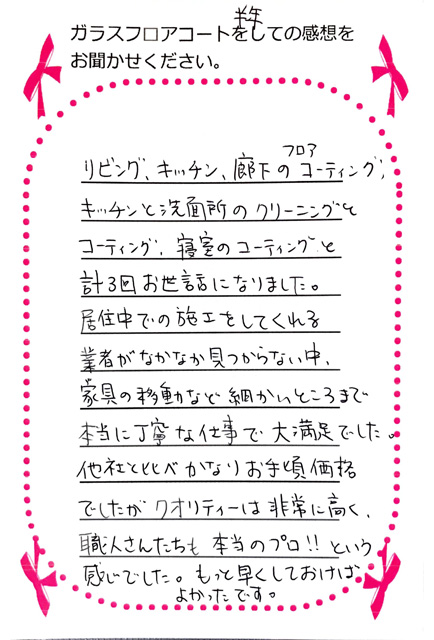 半年
ガラスフロアコートをしての感想を
お聞かせください。
フロア
リビング、キッチン、廊下のコーティング、
キッチンと洗面所のクリーニングと
コーティング、寝室のコーティングと
計3回お世話になりました。
居住中での施工をしてくれる
業者がなかなか見つからない中、
家具の移動など細かいところまで
本当に丁寧な仕事で大満足でした。
他社と比べかなりお手頃価格
でしたがクオリティーは非常に高く、
職人さんたちも本当のプロ!!という
感じでした。もっと早くしておけば
よかったです。